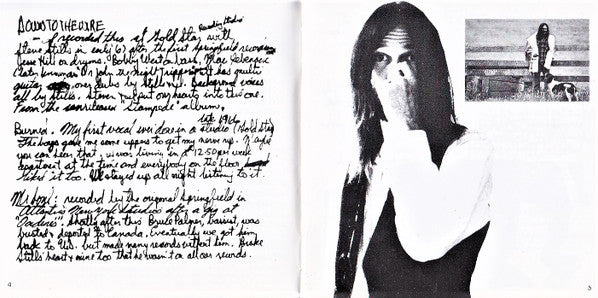 DOWN TO THE WIRE
Recording Studio
— I recorded this at Gold Star with
Steve Stills in early 67 after the first Springfield recording
Jesse Hill on drums. Bobby West on bass, Mac Rebenack
on
guitar over dubs by Stills + I. Background voices
all by Stills. Steve and I put our hearts into this one.
From the unreleased "Stampede" album.
late 1966
Burned: My first vocal ever done in a studio (Gold Star)
The boys gave me some uppers to get my nerve up. Maybe
you can hear that. I was living in a 12.50 per week
apartment at the time and everybody on the floor
liked it too. We stayed up all night listening to it.
Mr Soul: recorded by the original Springfield in
Atlantic New York Studios after a gig at
"Ondine's". Shortly after this Bruce Palmer, bassist, was
busted & deported to Canada. Eventually we got him
back to U.S. but made many records without him. Broke
Stills' heart & mine too that he wasn't on all our records.
4
5